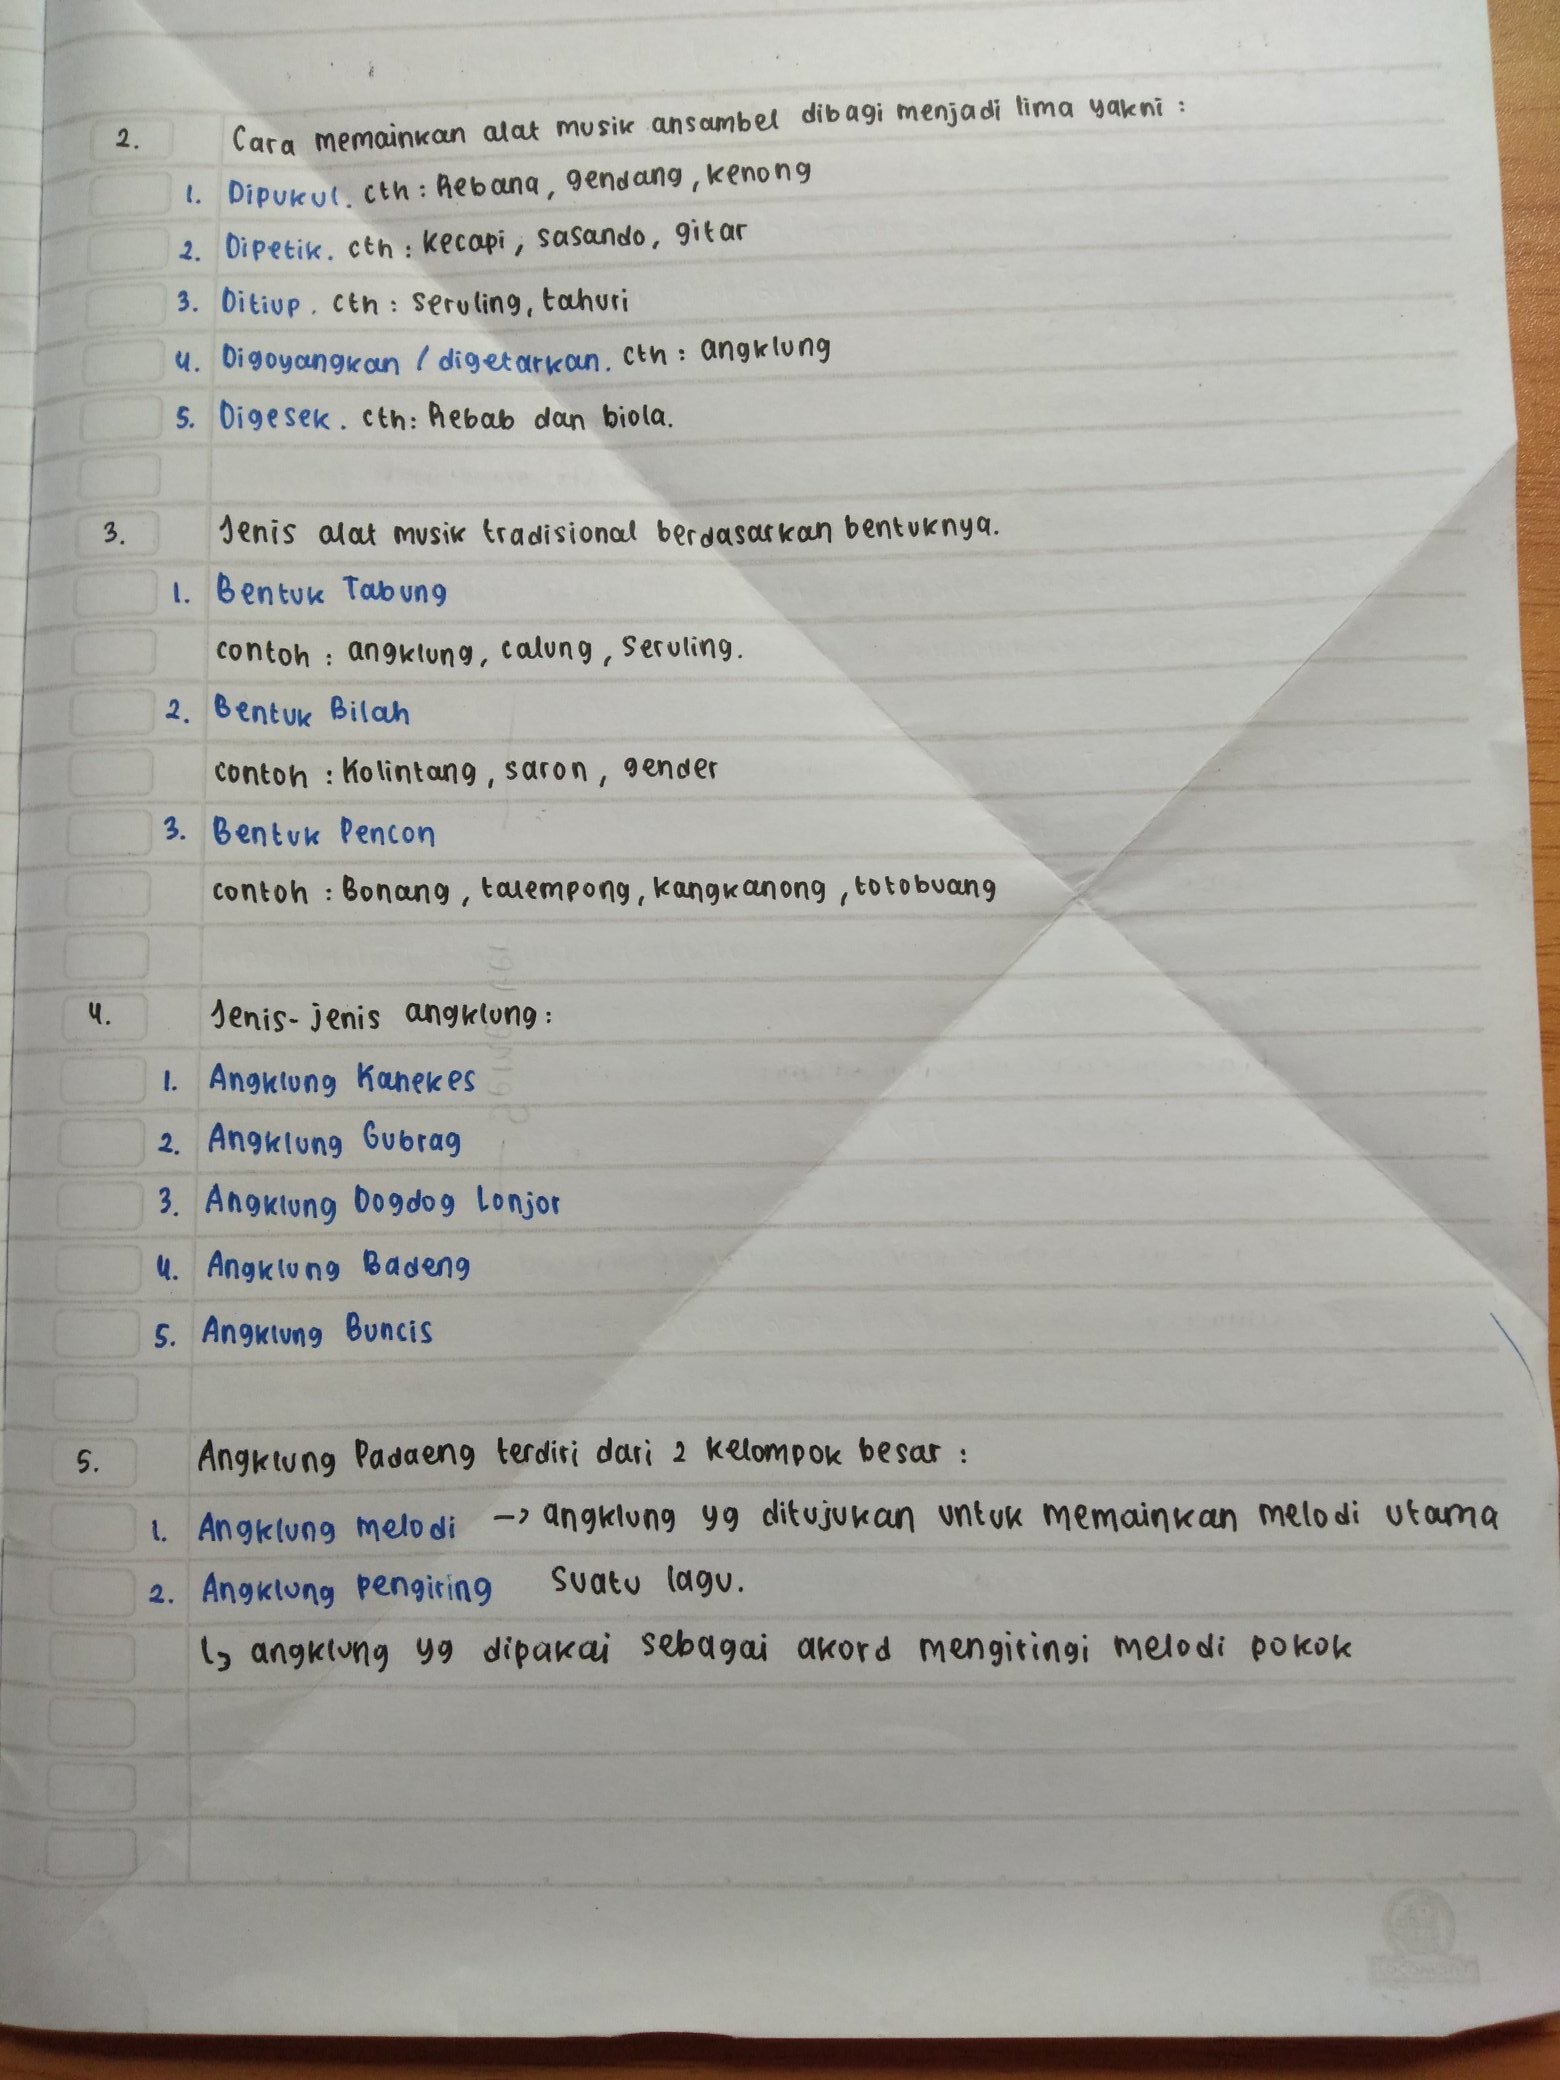 2. Cara memainkan alat musik ansambel dibagi menjadi lima yakni :
1. Dipukul. cth : Rebana, gendang, kenong
2. Dipetik. cth : kecapi, sasando, gitar
3. Ditiup. cth : seruling, tahuri
4. Digoyangkan / digetarkan. cth : angklung
5. Digesek. cth: Rebab dan biola.
3. Jenis alat musik tradisional berdasarkan bentuknya.
1. Bentuk Tabung
contoh : angklung, calung, seruling.
2. Bentuk Bilah
contoh : Kolintang, saron, gender
3. Bentuk Pencon
contoh : Bonang, talempong, kangkanong, totobuang
4. Jenis-jenis angklung :
1. Angklung Kanekes
2. Angklung Gubrag
3. Angklung Dogdog Lonjor
4. Angklung Badeng
5. Angklung Buncis
5. Angklung Padaeng terdiri dari 2 kelompok besar :
1. Angklung melodi → angklung yg ditujukan untuk memainkan melodi utama
2. Angklung pengiring suatu lagu.
↳ angklung yg dipakai sebagai akord mengiringi melodi pokok